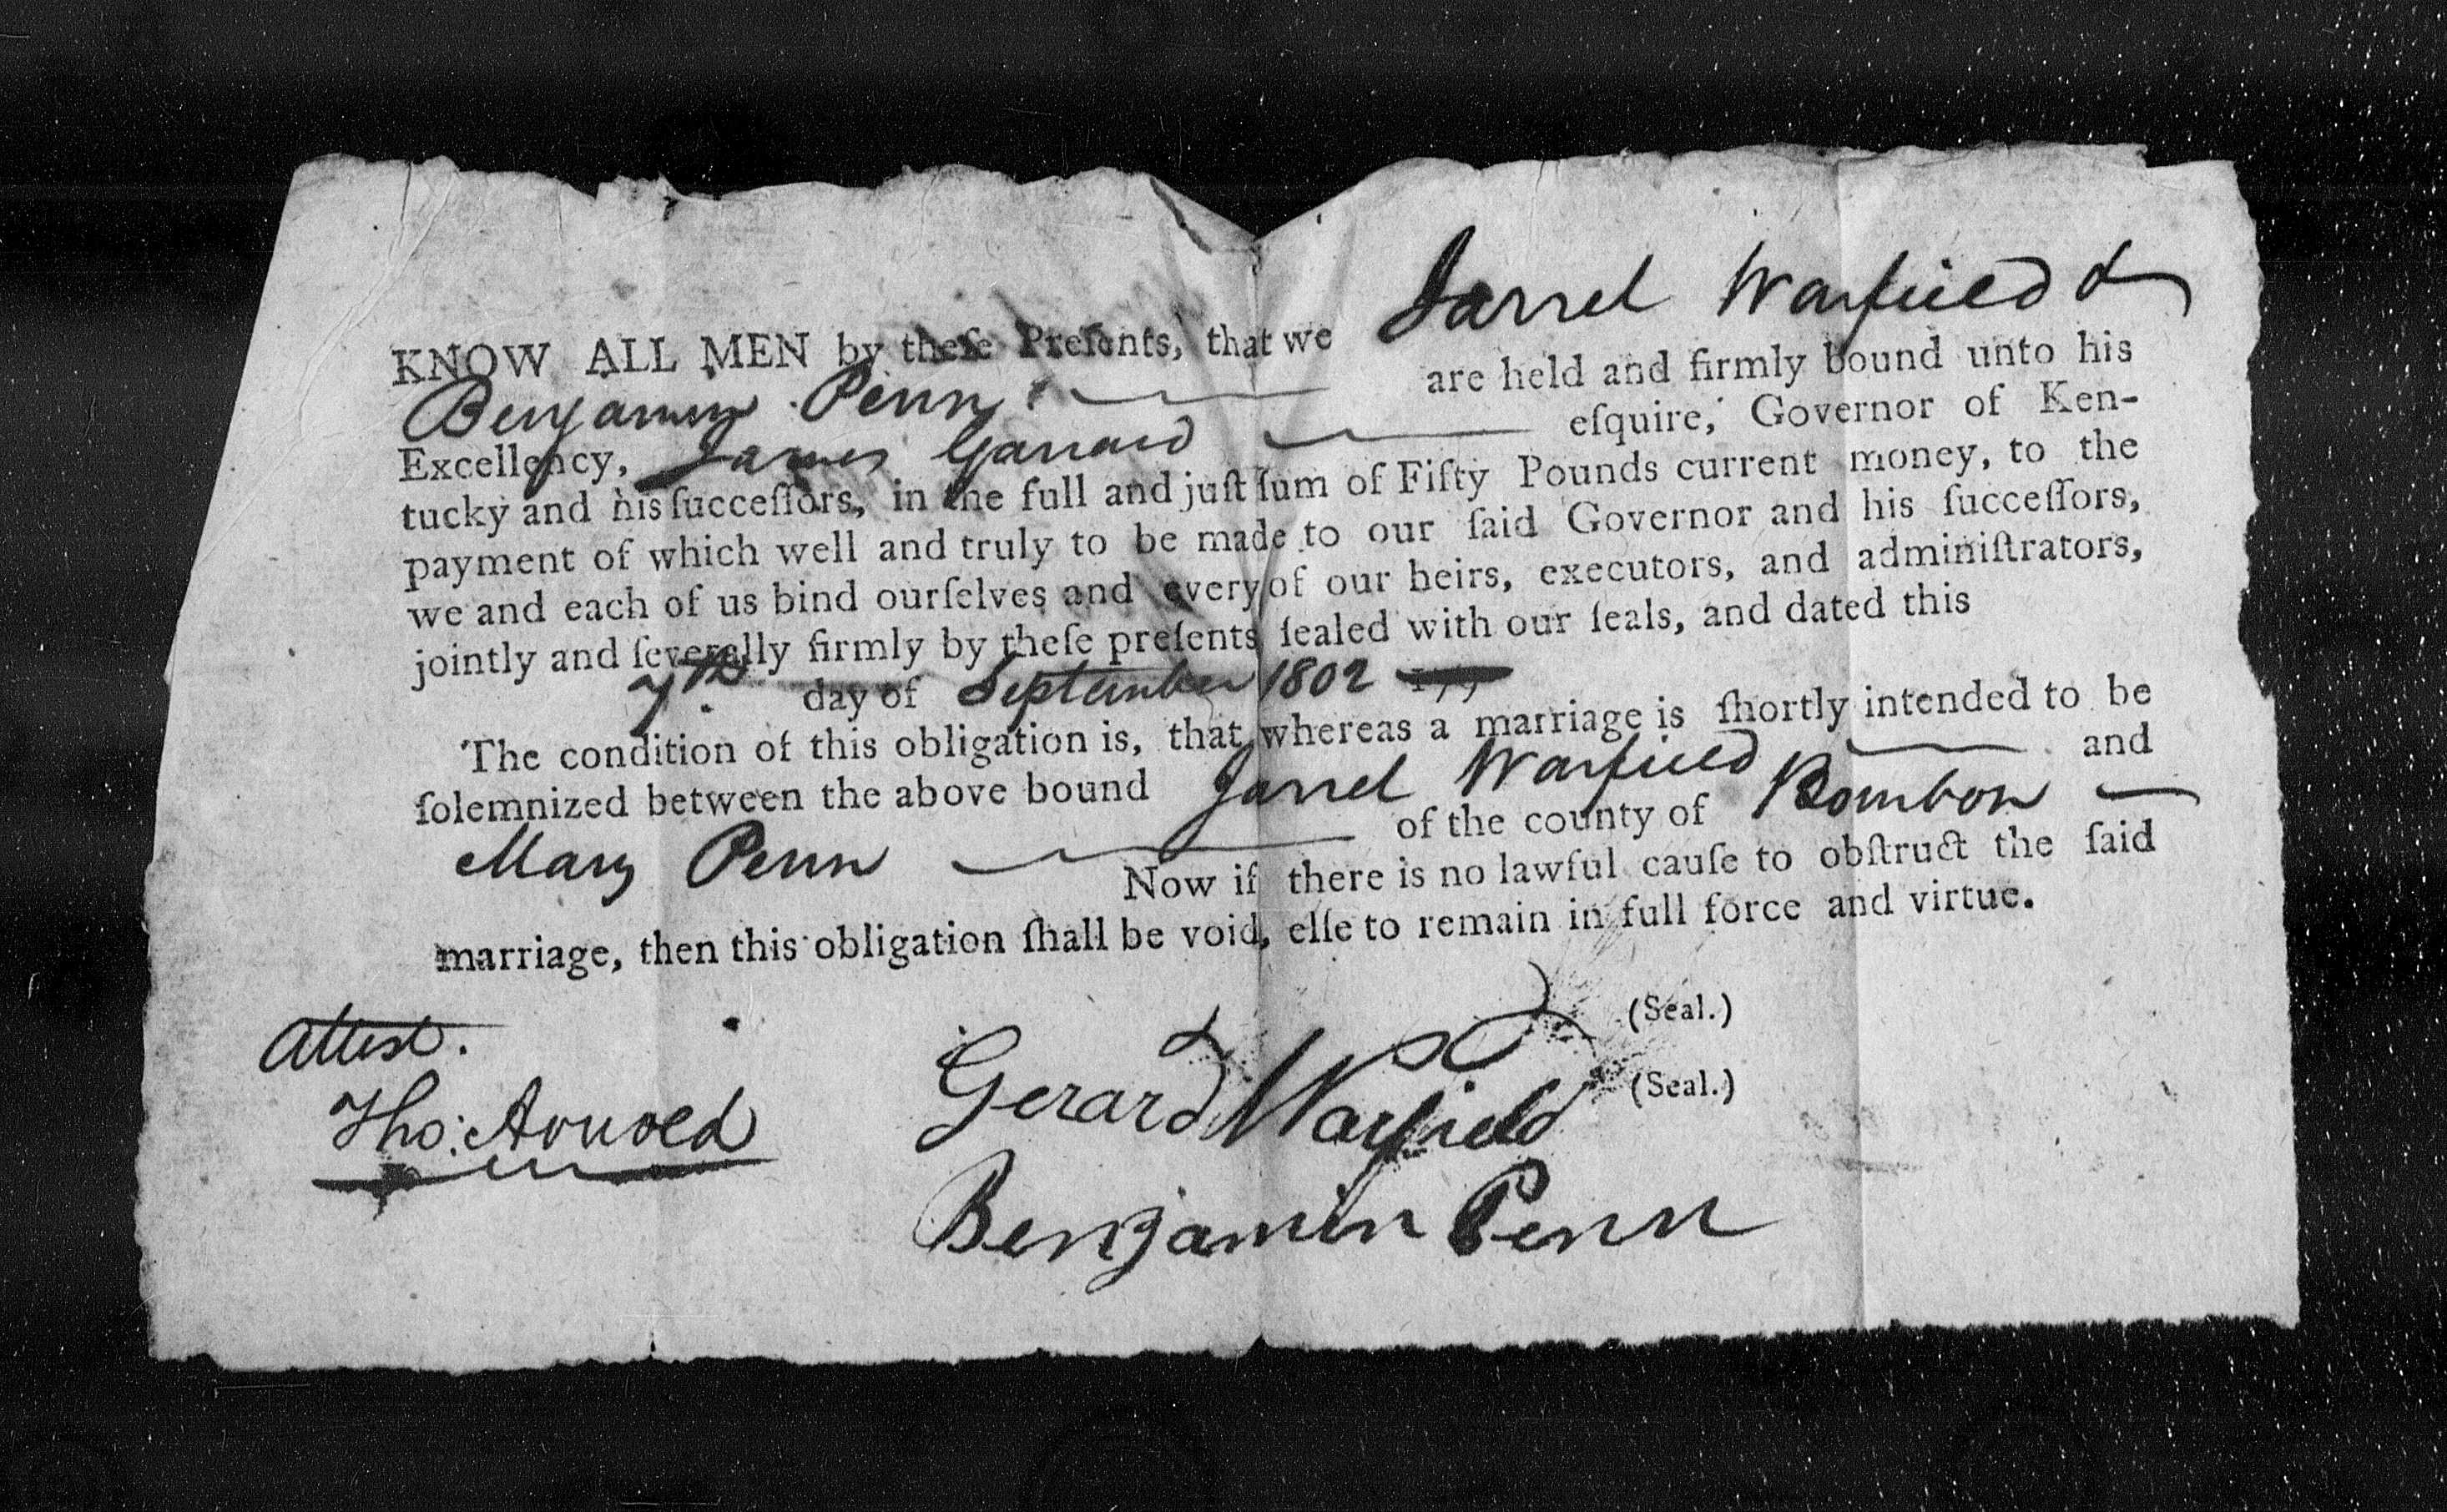 KNOW ALL MEN by theſe Preſents, that we Jarrel Warfield &
Benjamin Penn are held and firmly bound unto his
Excellency, James Garrard eſquire, Governor of Ken-
tucky and his ſucceſſors, in the full and juſt ſum of Fifty Pounds current money, to the
payment of which well and truly to be made to our ſaid Governor and his ſucceſſors,
we and each of us bind ourſelves and every of our heirs, executors, and adminiſtrators,
jointly and ſeverally firmly by theſe preſents ſealed with our ſeals, and dated this
7th day of September 1802
The condition of this obligation is, that whereas a marriage is ſhortly intended to be
ſolemnized between the above bound Jarrel Warfield and
Mary Penn of the county of Bourbon
Now if there is no lawful cauſe to obſtruct the ſaid
marriage, then this obligation ſhall be void, elſe to remain in full force and virtue.
Attest.
Tho: Arnold
Gerard Warfield (Seal.)
Benjamin Penn (Seal.)